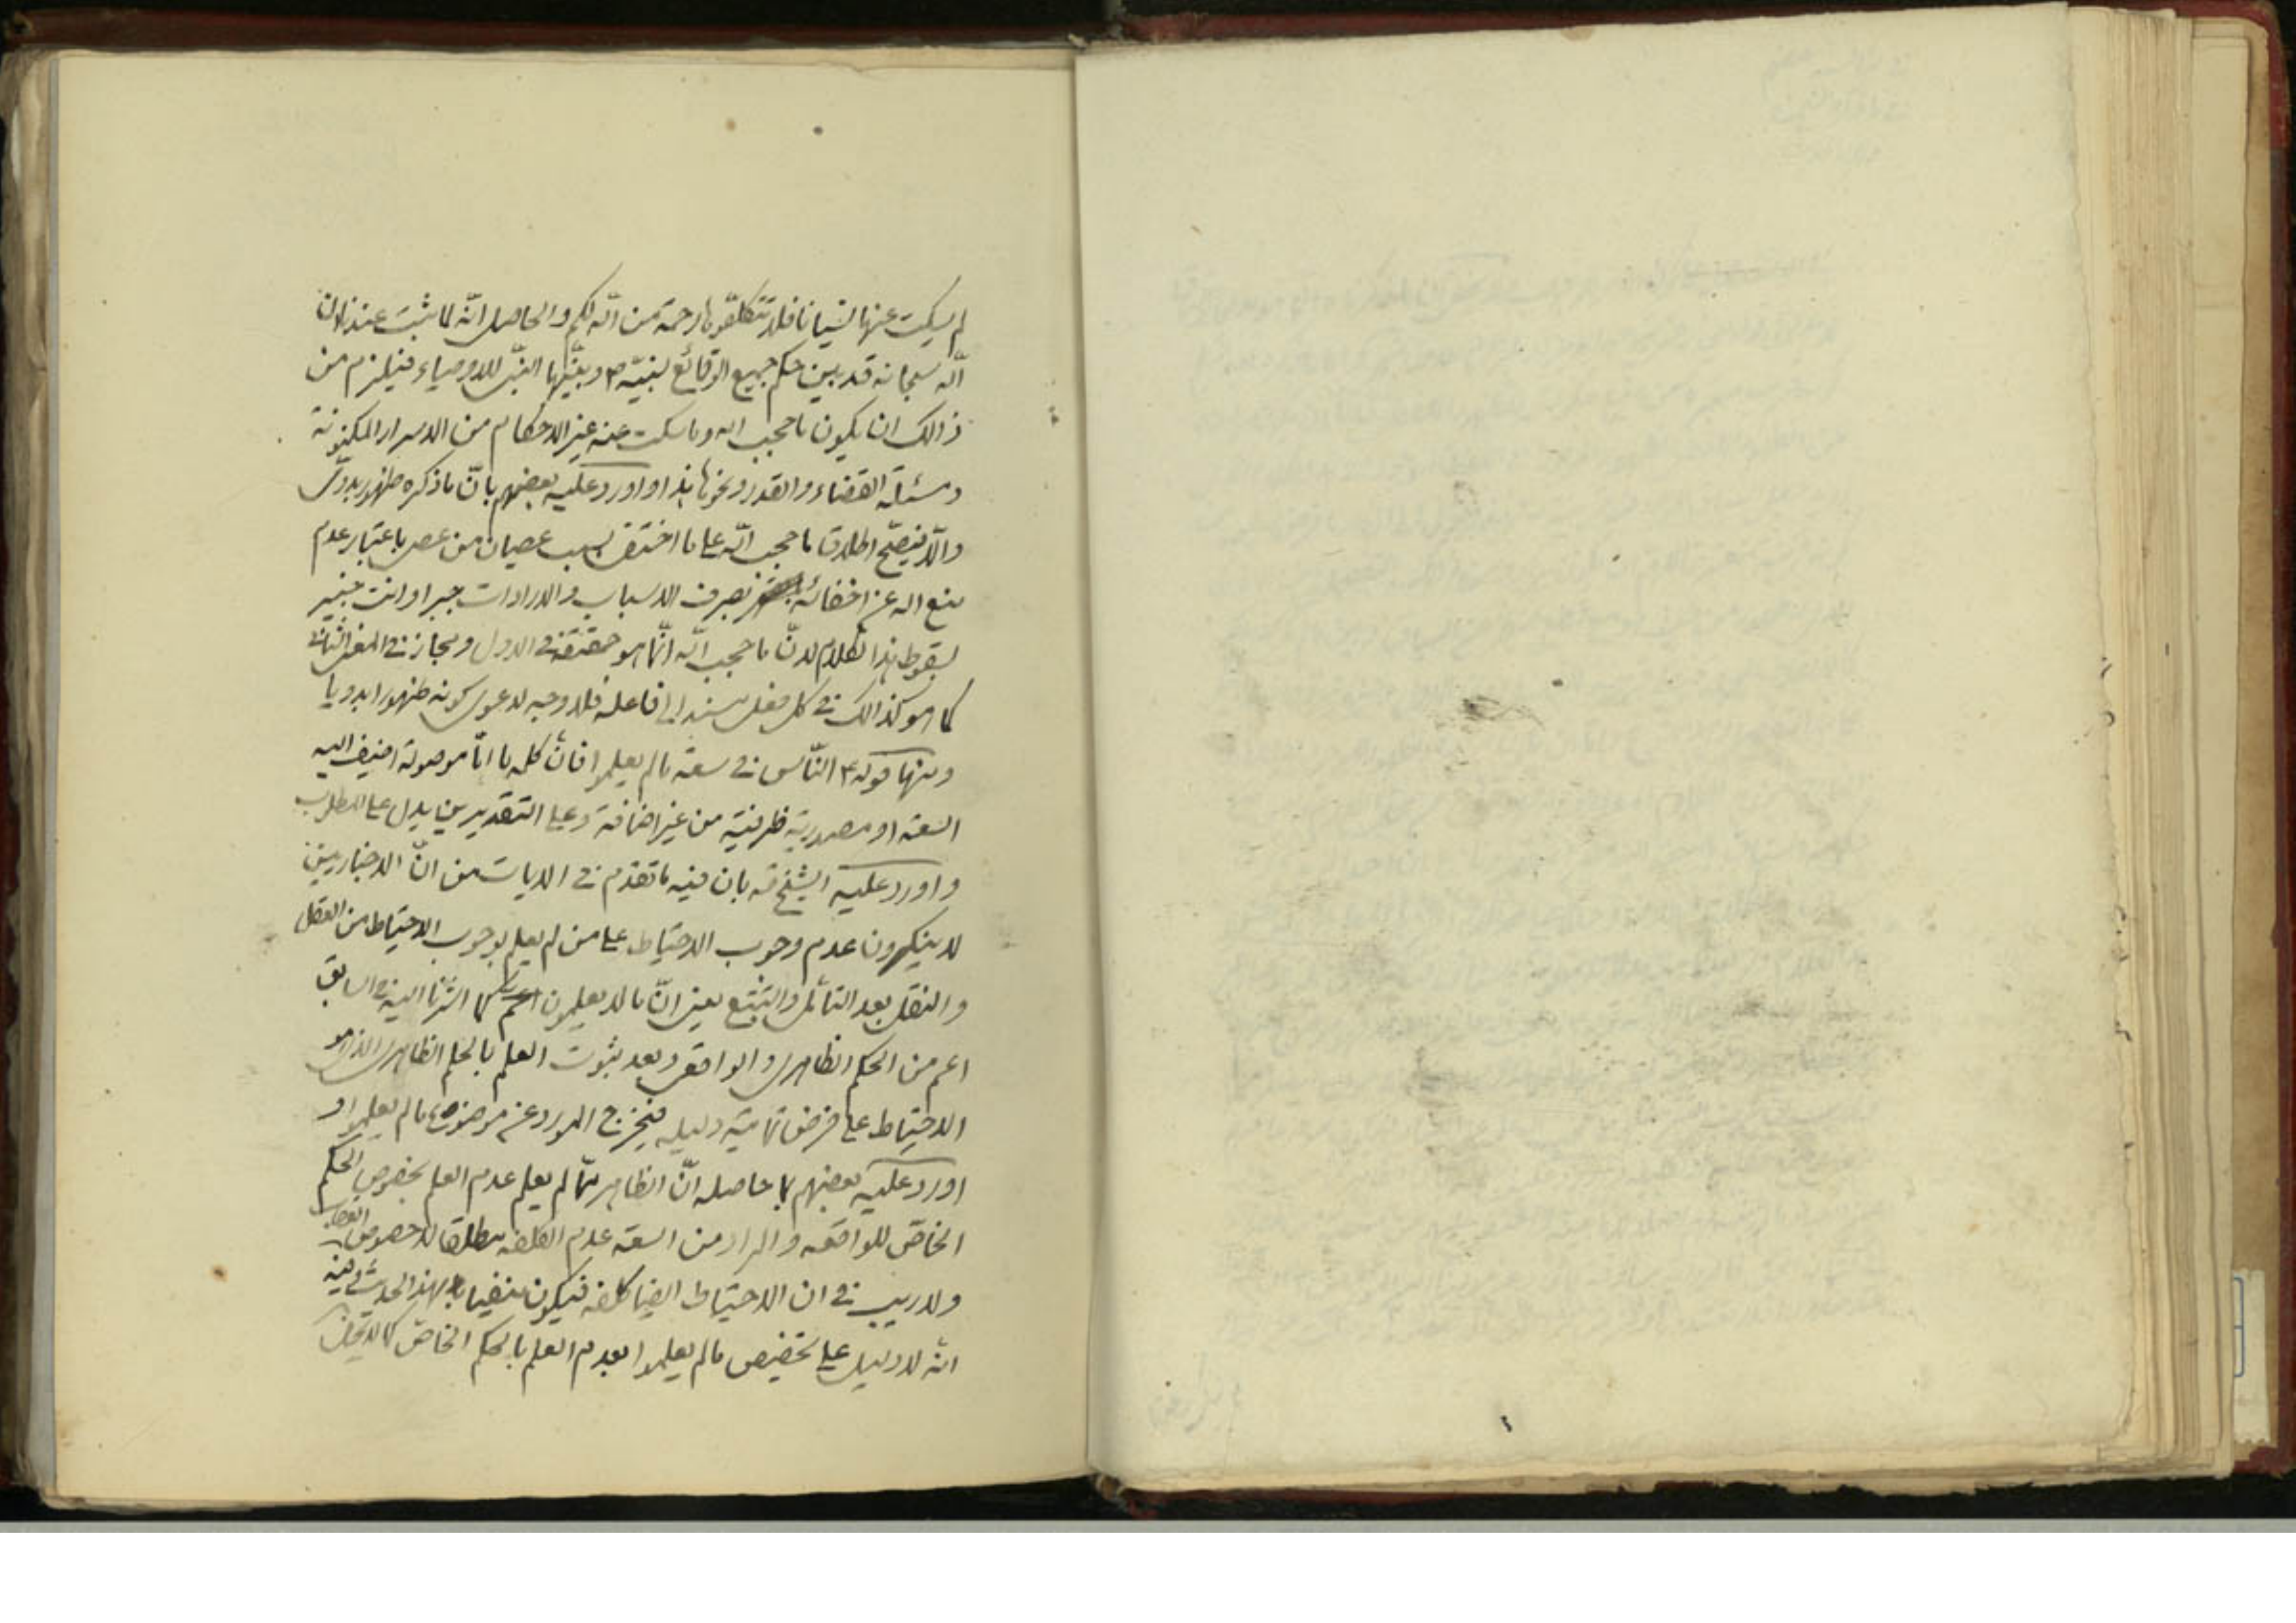 لم يسكت عنها نسيانا فلا تتكلّفوها رحمة من اللّه لكم والحاصل انّه لما ثبت عندنا ان
اللّه سبحانه قد بين حكم جميع الوقائع لنبيّه ص وبيّنها النبىّ للاوصياء فيلزم من
ذالك ان يكون ما حجب اللّه وما سكت عنه غير الاحكام من الاسرار المكنونة
ومسئلة القضاء والقدر ونحوها هذا واورد عليه بعضهم بانّ ما ذكره ظهور بدوىّ
والّا فيصحّ اطلاق ما حجب اللّه على ما اختفى بسبب عصيان من عصى باعتبار عدم
منع اللّه عن اخفائه بصرف الاسباب والارادات جبرا وانت خبير
بسقوط هذا الكلام لانّ ما حجب اللّه انّما هو حقيقة فى الاول ومجاز فى المعنى الثانى
كما هو كذالك فى كل فعل يسند الى فاعله فلا وجه لدعوى كونه ظهورا بدويا
ومنها قوله ع النّاس فى سعة ما لم يعلموا فانّ كلمه ما امّا موصولة اضيف اليه
السعه او مصدرية ظرفية من غير اضافة وعلى التقديرين يدل على المطلوب
واورد عليه الشيخ قه بان فيه ما تقدم فى الايات من انّ الاخباريين
لا ينكرون عدم وجوب الاحتياط على من لم يعلم بوجوب الاحتياط من العقل
والنقل بعد التأمل والتتبع يعنى انّ ما لا يعلمون كما اشرنا اليه فى السابق
اعم من الحكم الظاهرى والواقعى وبعد ثبوت العلم بالحكم الظاهرى الذى هو
الاحتياط على فرض تماميّة دليله فيخرج المورد عن موضوع ما لم يعلموا و
اورد عليه بعضهم بما حاصله انّ الظاهر ممّا لم يعلم عدم العلم بخصوص الحكم
الخاصّ للواقعه والمراد من السعه عدم الكلفه مطلقا لا خصوص العقاب
ولا ريب فى ان الاحتياط ايضا كلفه فيكون منفيا بهذا الحديث وفيه
انّه لا دليل على تخصيص ما لم يعلموا بعدم العلم بالحكم الخاصّ كما لا يخفى